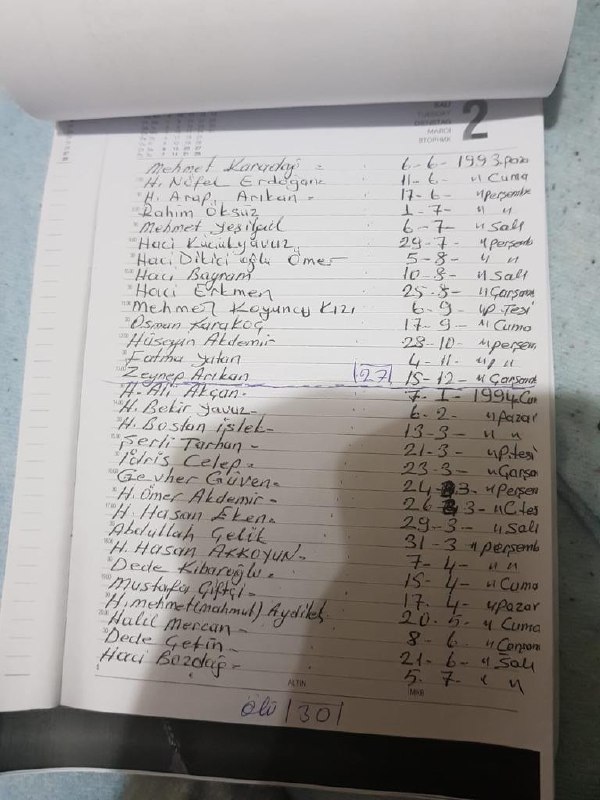 SALI
TUESDAY
DIENSTAG
MARDI
ВТОРНИК
2
Mehmet Karadağ - 6-6-1993 pazar
H. Nöfel Erdoğan- 11-6- " Cuma
H. Arap Arıkan- 17-6- " perşembe
Rahim Öksüz 1-7- " "
Mehmet Yeşilçil 6-7- " Salı
Haci Küçükyavuz 29-7- " perşemb
Haci Dikici oğlu Ömer 5-8- " "
Haci Bayram 10-8- " Salı
Haci Erkmen 25-8- " Çarşamb
Mehmet Koyuncu Kızı 6-9- " p.Tesi
Osman Karakoç 17-9- " Cuma
Hüseyin Akdemir 28-10- " perşem
Fatma Yutan 4-11- " p "
Zeynep Arıkan |27| 15-12- " Çarşamb
H. Ali Akçan- 7-1-1994 Cum
H. Bekir Yavuz- 6-2- " pazar
H. Bostan işlek- 13-3- " "
Şerli Tarhan- 21-3- " P.tesi
İdris Celep- 23-3- " Çarşa
Gevher Güven- 24-3- " perşem
H. Ömer Akdemir- 26-3- " C.tes
H. Hasan Eken- 29-3- " Salı
Abdullah Çelik 31-3 " perşemb
H. Hasan AKKOYUN- 7-4- " "
Dede Kibaroğlu- 15-4- " Cuma
Mustafa Çiftçi- 17-4- " pazar
H. mehmet (mahmut) Aydilek 20-5- " Cuma
Halil Mercan- 8-6- " Çarşam
Dede Çetin- 21-6- " Salı
Haci Bozdağ- 5-7- " "
ALTIN
MKB
ölü |30|